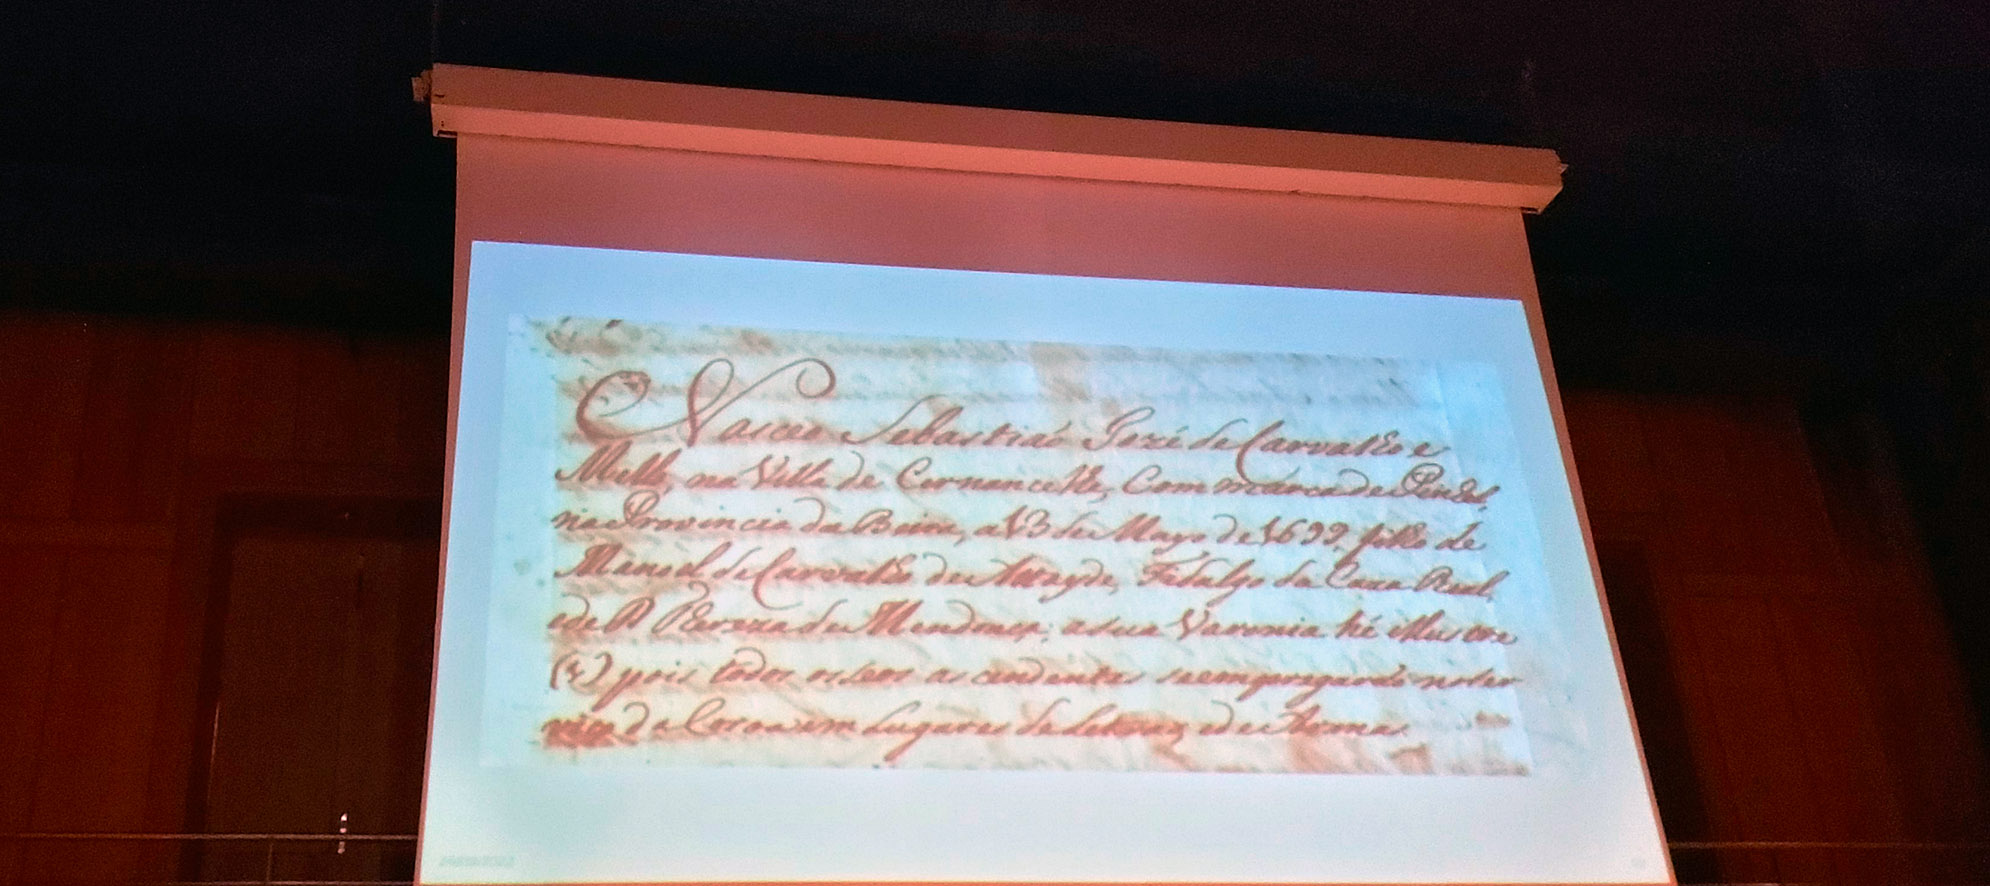 Nasceo Sebastiaõ Jozé de Carvalho e
Mello, na Villa de Cernancelhe, Commarca de Pinhel,
na Provincia da Beira, a 13 de Mayo de 1699, filho de
Manoel de Carvalho de Attayde, Fidalgo da Caza Real,
e de D. Thereza de Mendonça; a sua Varonia hé illustre
pois todos os seos ascendentes se empregaraõ no ser
viço da Coroa em Lugares de Letras, e de Armas.